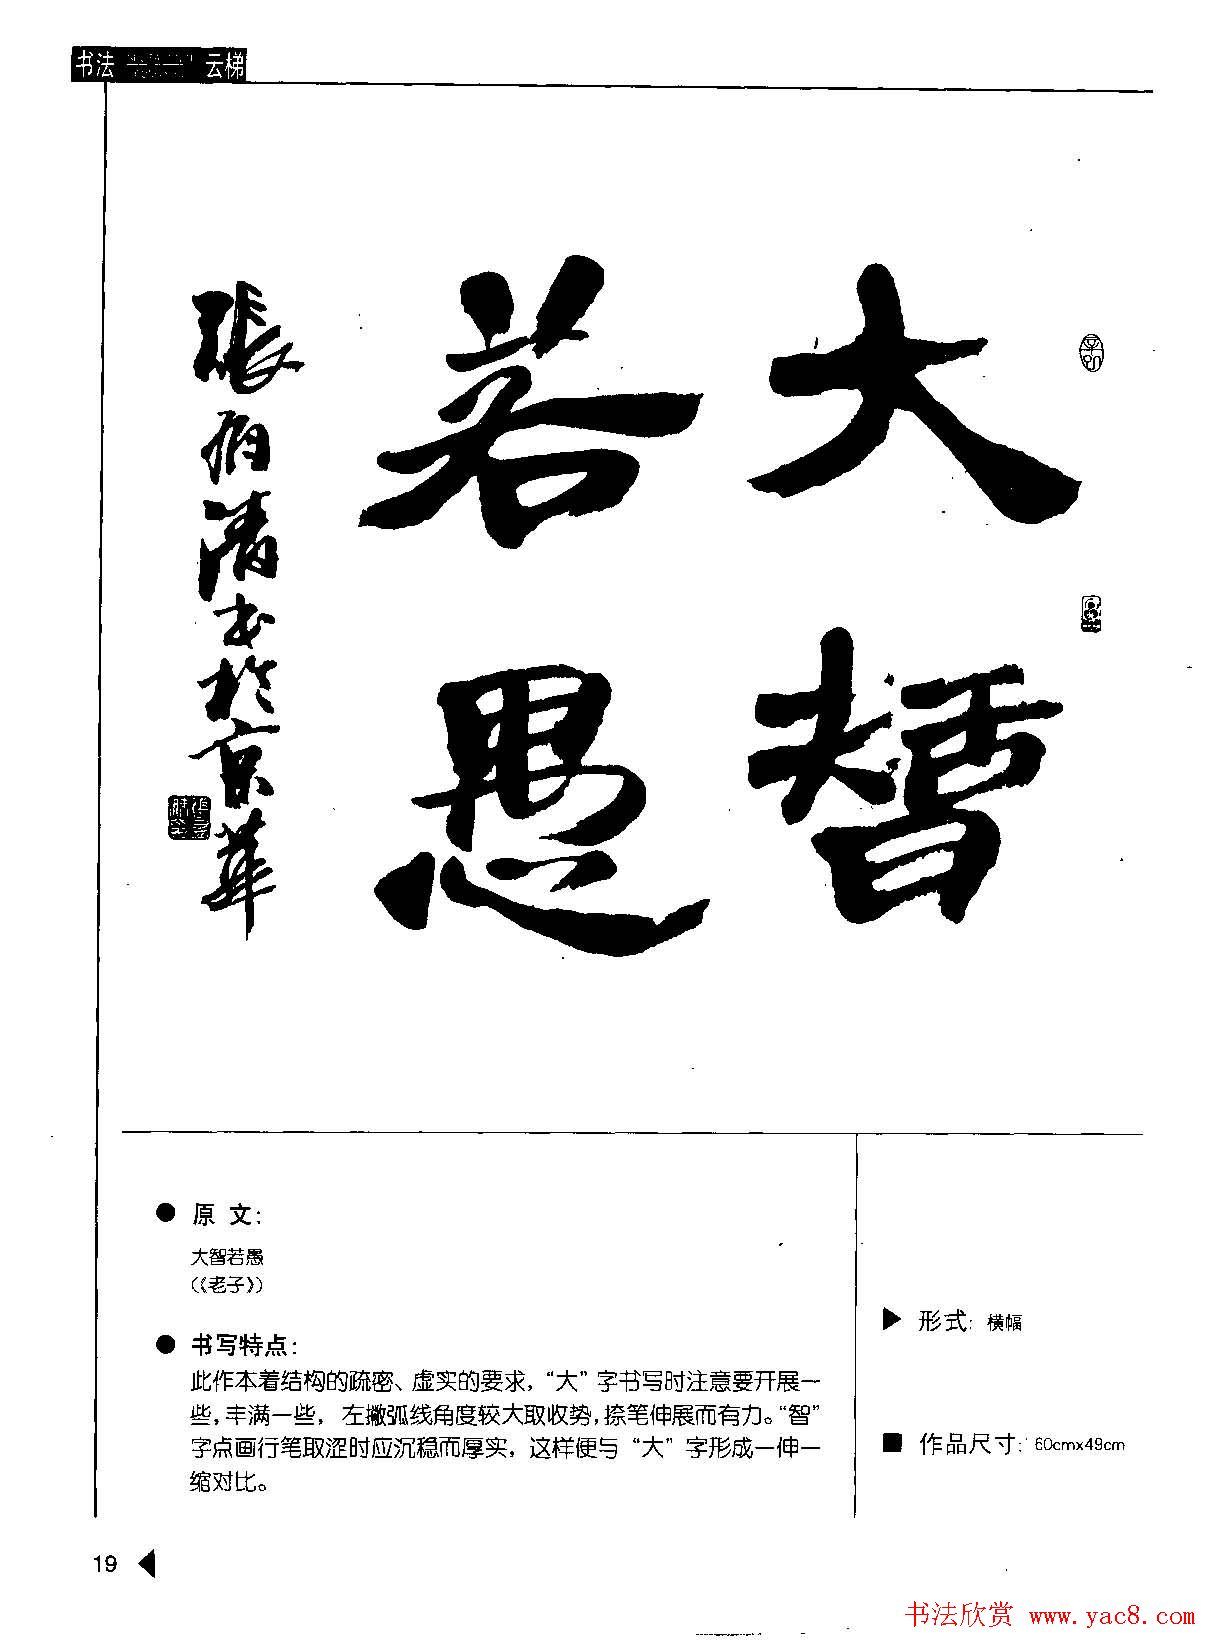 书法 云梯
大智
若愚
張炳清书於京華
● 原 文：
大智若愚
（《老子》）
● 书写特点：
此作本着结构的疏密、虚实的要求，“大”字书写时注意要开展一
些，丰满一些， 左撇弧线角度较大取收势，捺笔伸展而有力。“智”
字点画行笔取涩时应沉稳而厚实， 这样便与 “大” 字形成一伸一
缩对比。
▶ 形式： 横幅
■ 作品尺寸： 60cmx49cm
19
书法欣赏 www.yac8.com